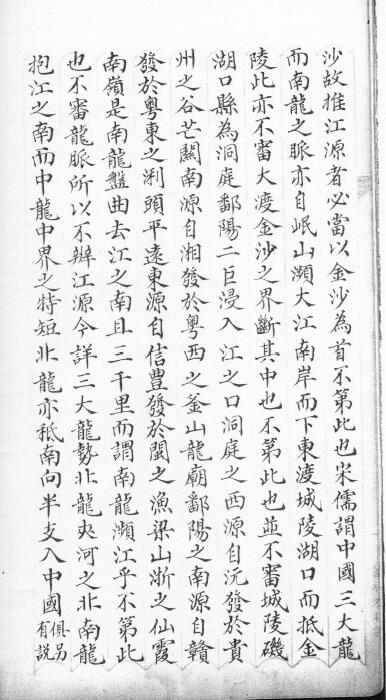 沙故推江源者必當以金沙為首不第此也宋儒謂中國三大龍
而南龍之脈亦自岷山瀕大江南岸而下東渡城陵湖口而抵金
陵此亦不審大渡金沙之界斷其中也不第此也並不審城陵磯
湖口縣為洞庭鄱陽二巨浸入江之口洞庭之西源自沅發於貴
州之谷芒關南源自湘發於粵西之釜山龍廟鄱陽之南源自贛
發於粵東之浰頭平遠東源自信豐發於閩之漁梁山浙之仙霞
南嶺是南龍盤曲去江之南且三千里而謂南龍瀕江乎不第此
也不審龍脈所以不辨江源今詳三大龍勢北龍夾河之北南龍
抱江之南而中龍中界之特短北龍亦秪南向半支入中國俱另有說